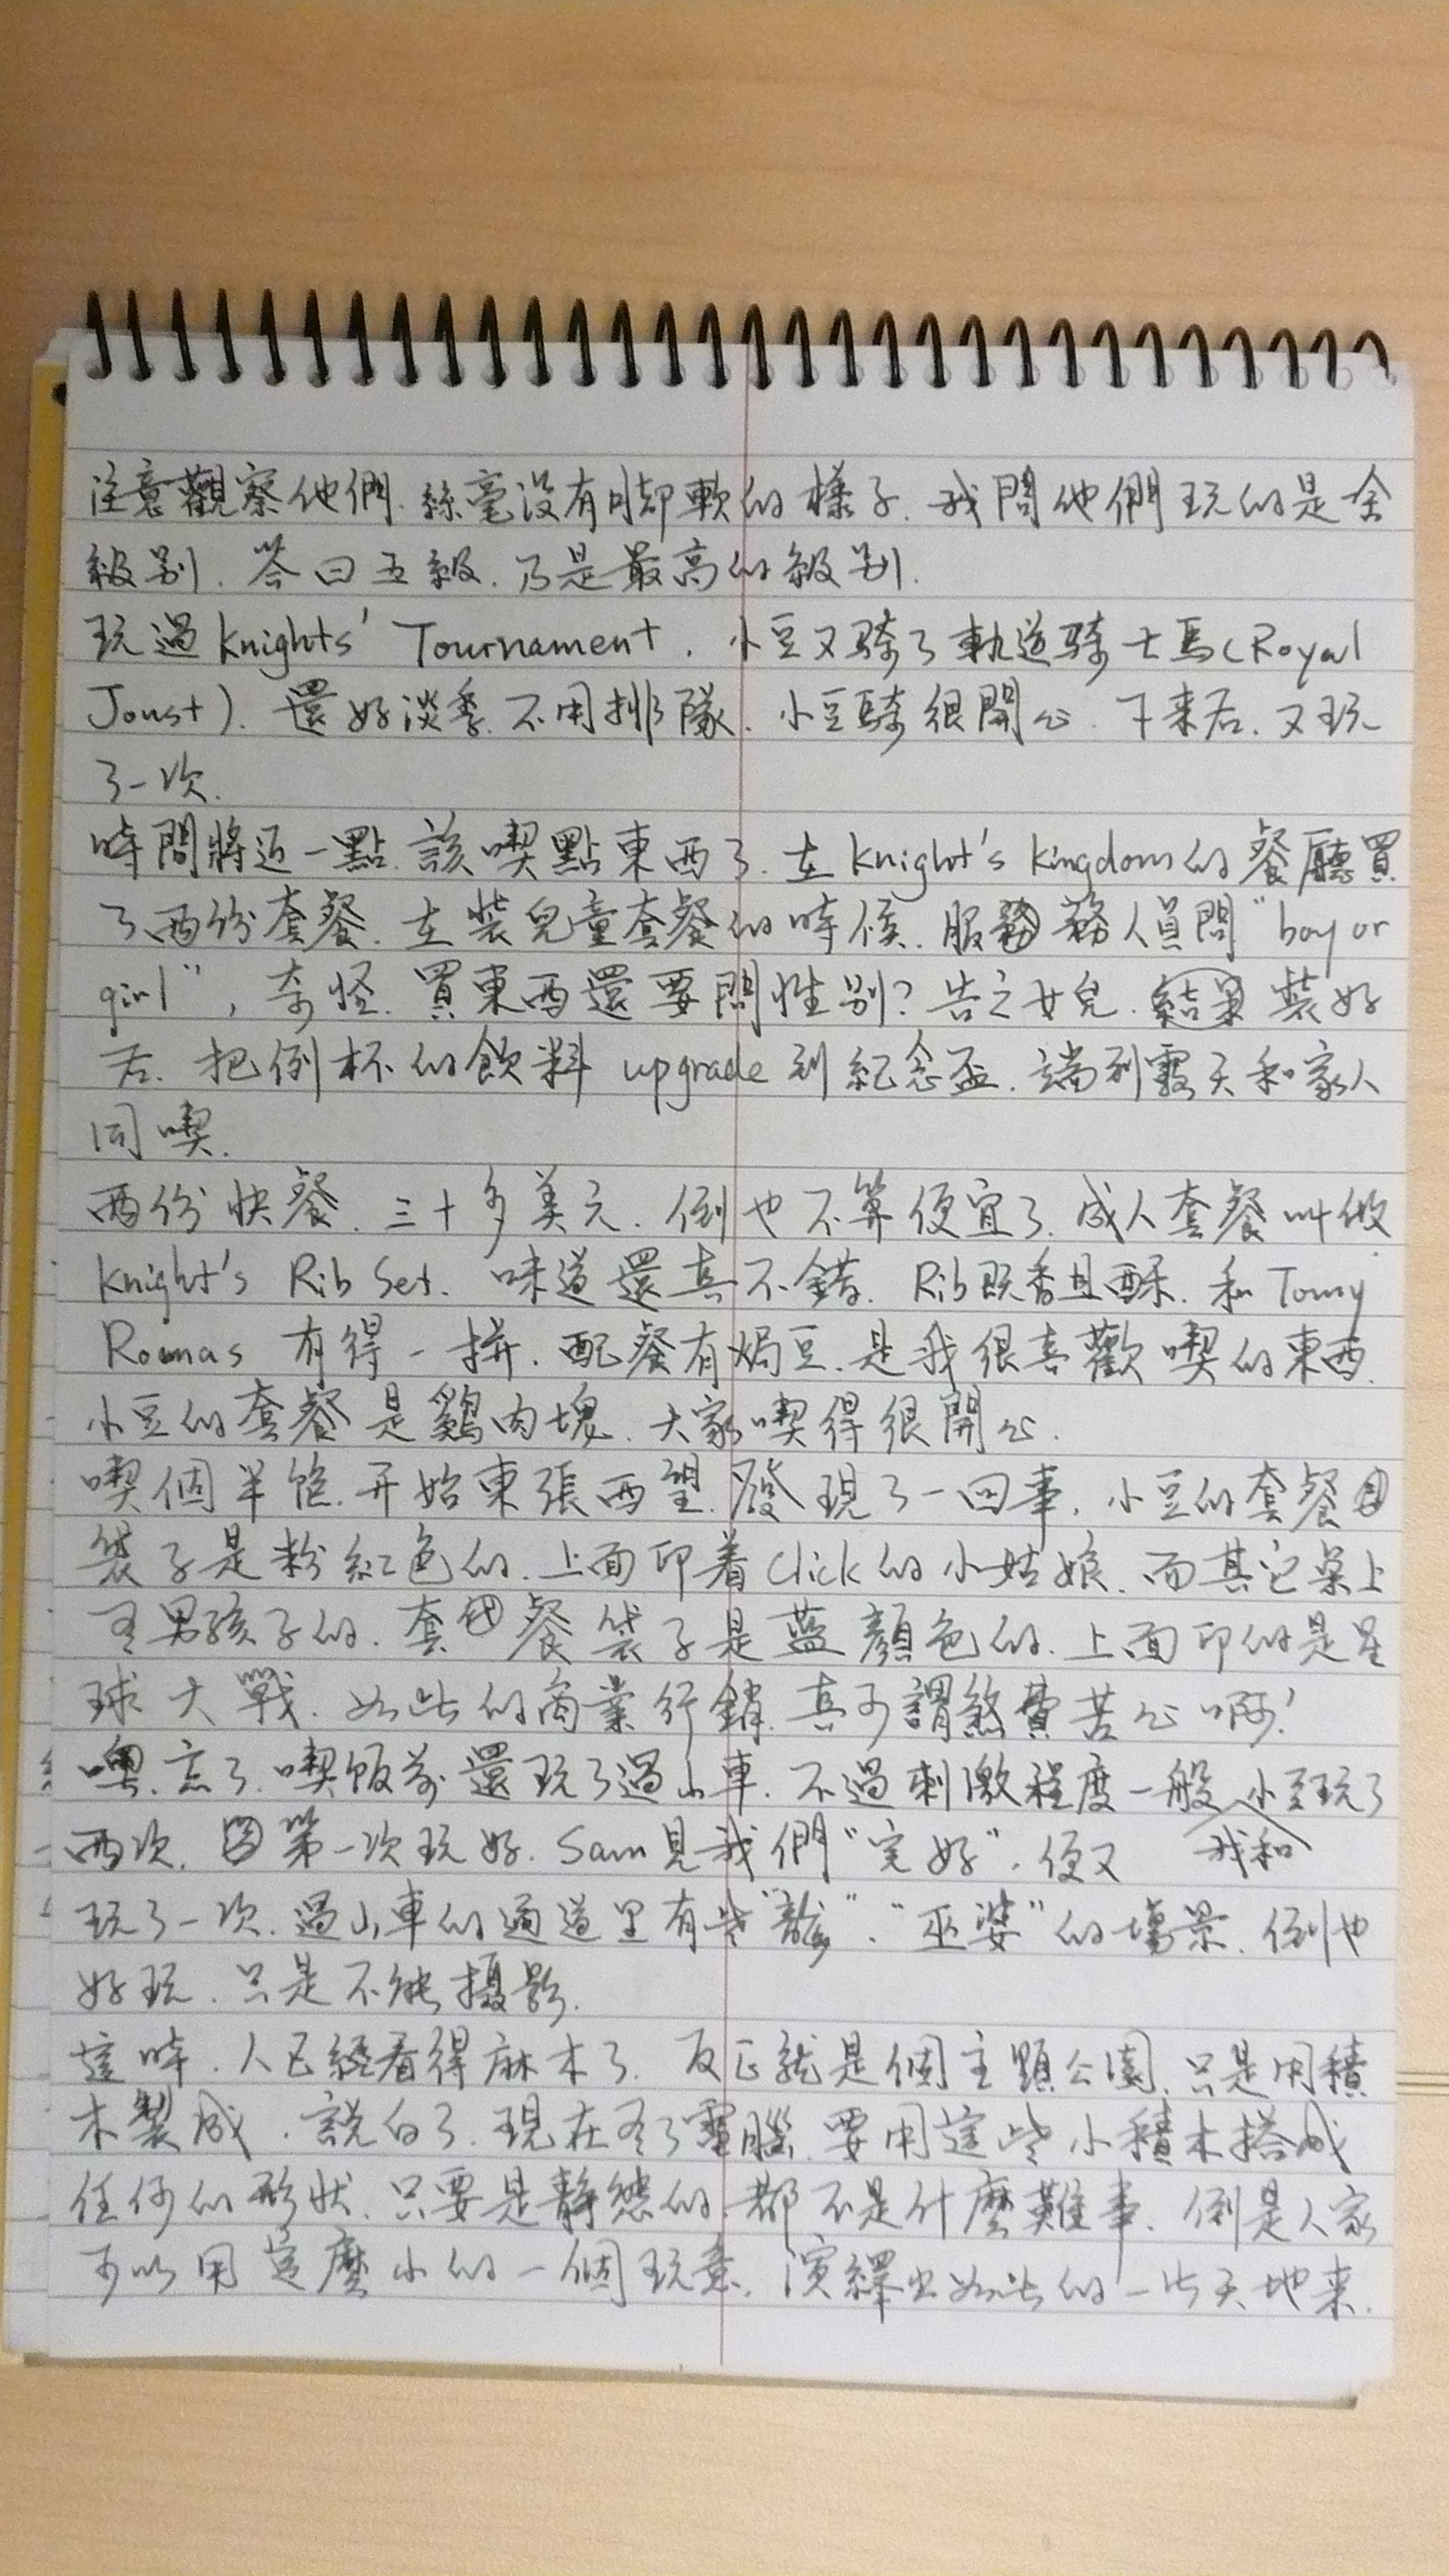 注意觀察他們.絲毫沒有脚軟的樣子.我問他們玩的是舍
級别.答曰五級.乃是最高的級别.
玩過Knights' Tournament.小豆又騎了軌道騎士馬(Royal
Joust).還好淡季.不用排隊.小豆騎很開心.下来后.又玩
了一次.
時間將近一點.該喫點東西了.在Knight's Kingdom的餐廳買
了兩份套餐.在裝兒童套餐的時候.服務人員問"boy or
girl",奇怪.買東西還要問性别?告之女兒.結果裝好
后.把例杯的飲料upgrade到紀念盃.端到露天和家人
同喫.
兩份快餐.三十多美元.倒也不算便宜了.成人套餐叫做
Knight's Rib Set.味道還真不錯.Rib既香且酥.和Tony
Romas有得一拼.配餐有焗豆.是我很喜歡喫的東西.
小豆的套餐是鷄肉塊.大家喫得很開心.
喫個半飽.开始東張西望.發現了一回事.小豆的套餐
袋子是粉紅色的.上面印着Click的小姑娘.而其它桌上
有男孩子的.套餐袋子是蓝顏色的.上面印的是星
球大戰.如此的商業行銷.真可謂煞費苦心啊!
噢.忘了.喫饭前還玩了過山車.不過刺激程度一般.小豆玩了
兩次.第一次玩好.Sam見我們"完好".便又 我和
玩了一次.過山車的通道里有些"龍"."巫婆"的場景.倒也
好玩.只是不能攝影.
這時.人已經看得麻木了.反正就是個主題公園.只是用積
木製成.說白了.現在有了電腦.要用這些小積木搭成
任何的形狀.只要是靜態的.都不是什麼難事.倒是人家
可以用這麼小的一個玩意.演繹出如此的一片天地来.